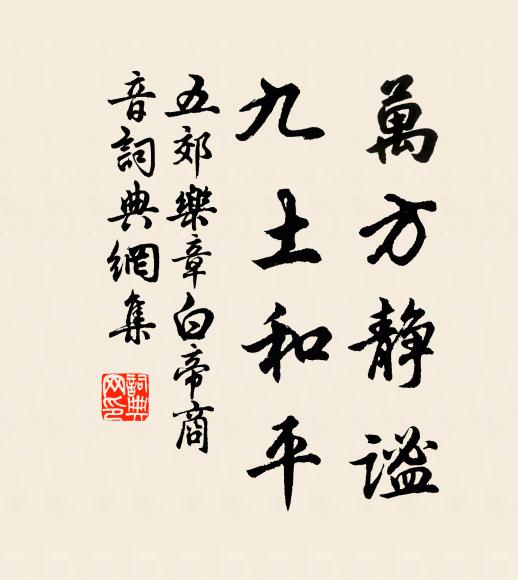 萬方静謐
九土和平
五郊樂章白帝商
音詞典網集
詞典
网印